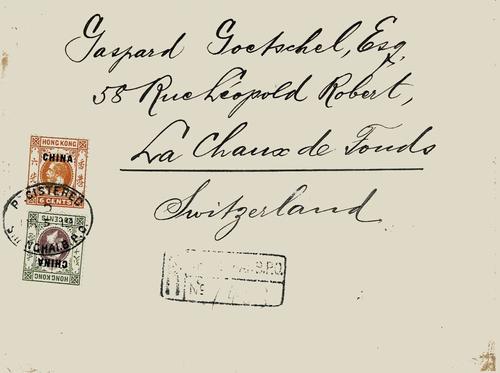 Gaspard Goetschel, Esq,
58 Rue Léopold Robert,
La Chaux de Fonds
Switzerland
HONG KONG
CHINA
6 CENTS
REGISTERED
B.P.O.
CHINA
HONG KONG
R
B.P.O.
No